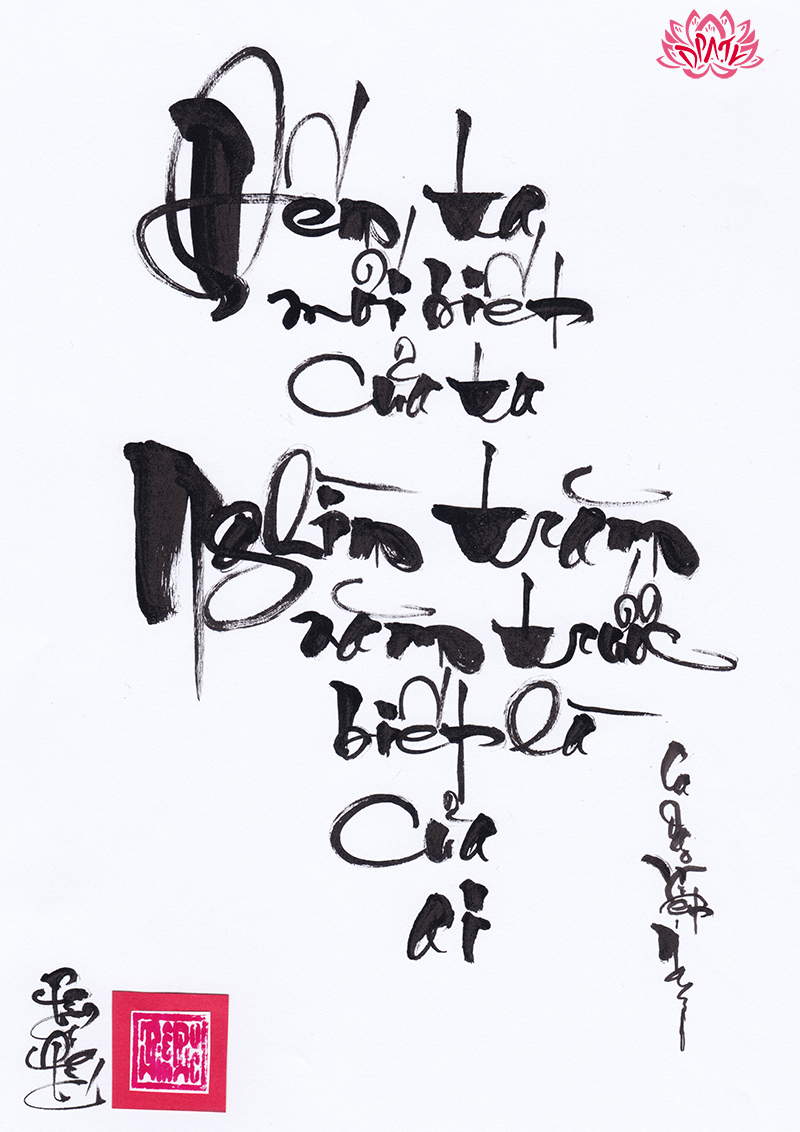 Đến ta
mới biết
Của ta
Nghìn trăm
năm trước
biết là
Của
ai
Ca
Dao
Việt
Nam